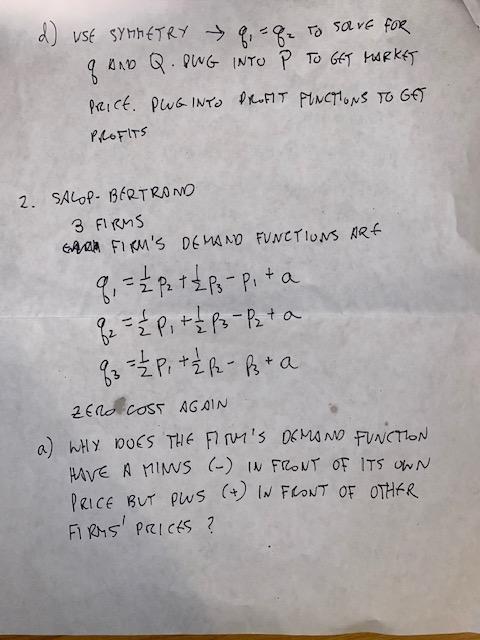 d) USE SYMMETRY → q₁ = q₂ TO SOLVE FOR
q AND Q. PLUG INTO P TO GET MARKET
PRICE. PLUG INTO PROFIT FUNCTIONS TO GET
PROFITS
2. SALOP-BERTRAND
3 FIRMS
FIRM'S DEMAND FUNCTIONS ARE
q₁ = ½ P₂ + ½ P₃ - P₁ + a
q₂ = ½ P₁ + ½ P₃ - P₂ + a
q₃ = ½ P₁ + ½ P₂ - P₃ + a
ZERO COST AGAIN
a) WHY DOES THE FIRM'S DEMAND FUNCTION
HAVE A MINUS (-) IN FRONT OF ITS OWN
PRICE BUT PLUS (+) IN FRONT OF OTHER
FIRMS' PRICES ?